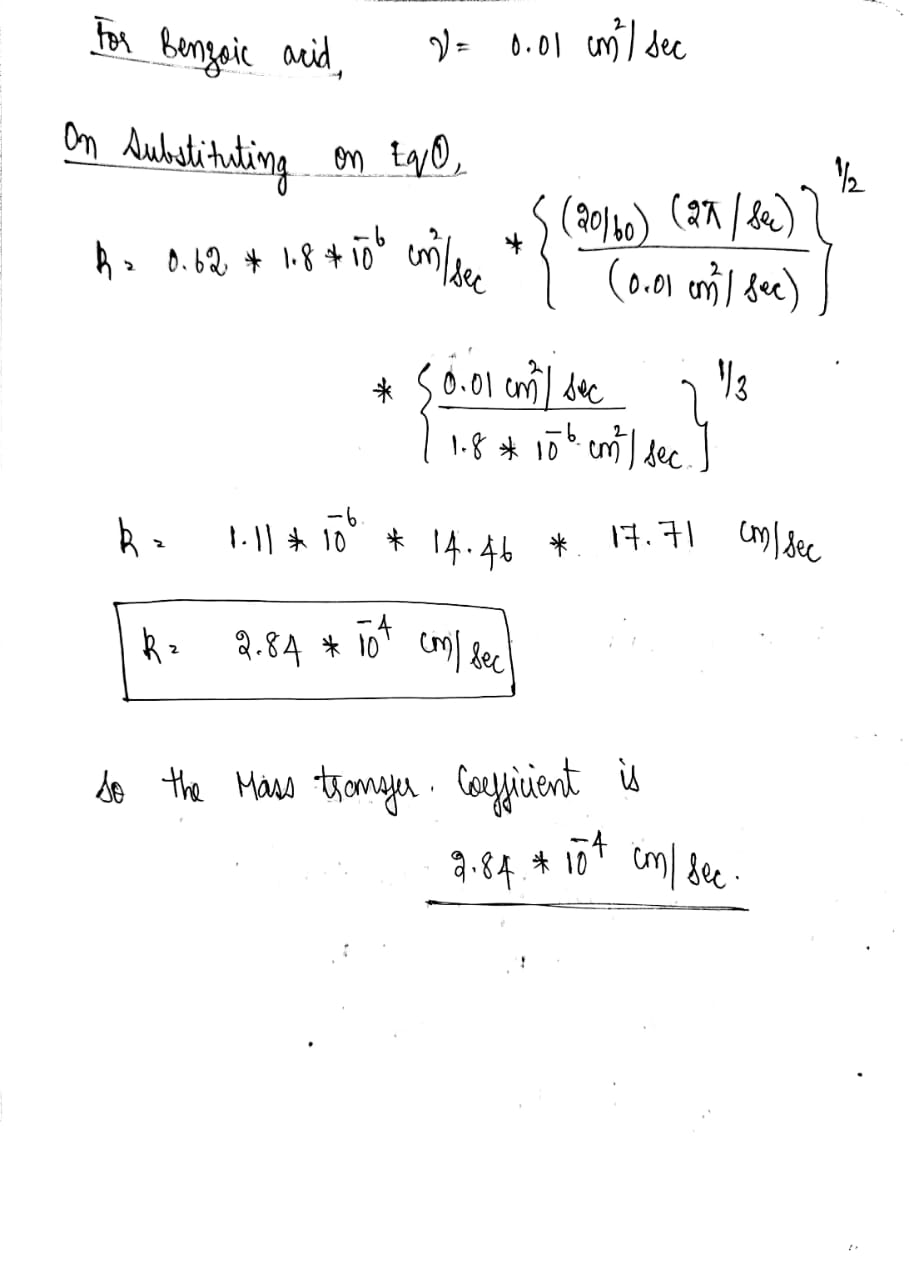 For Benzoic acid, ν = 0.01 cm²/sec
On Substituting on Eq①,
k = 0.62 * 1.8 * 10⁻⁶ cm²/sec * {(20/60) (2π/sec) / (0.01 cm²/sec)}^1/2
* {0.01 cm²/sec / 1.8 * 10⁻⁶ cm²/sec}^1/3
k = 1.11 * 10⁻⁶ * 14.46 * 17.71 cm/sec
k = 2.84 * 10⁻⁴ cm/sec
So the Mass transfer Coefficient is
2.84 * 10⁻⁴ cm/sec.